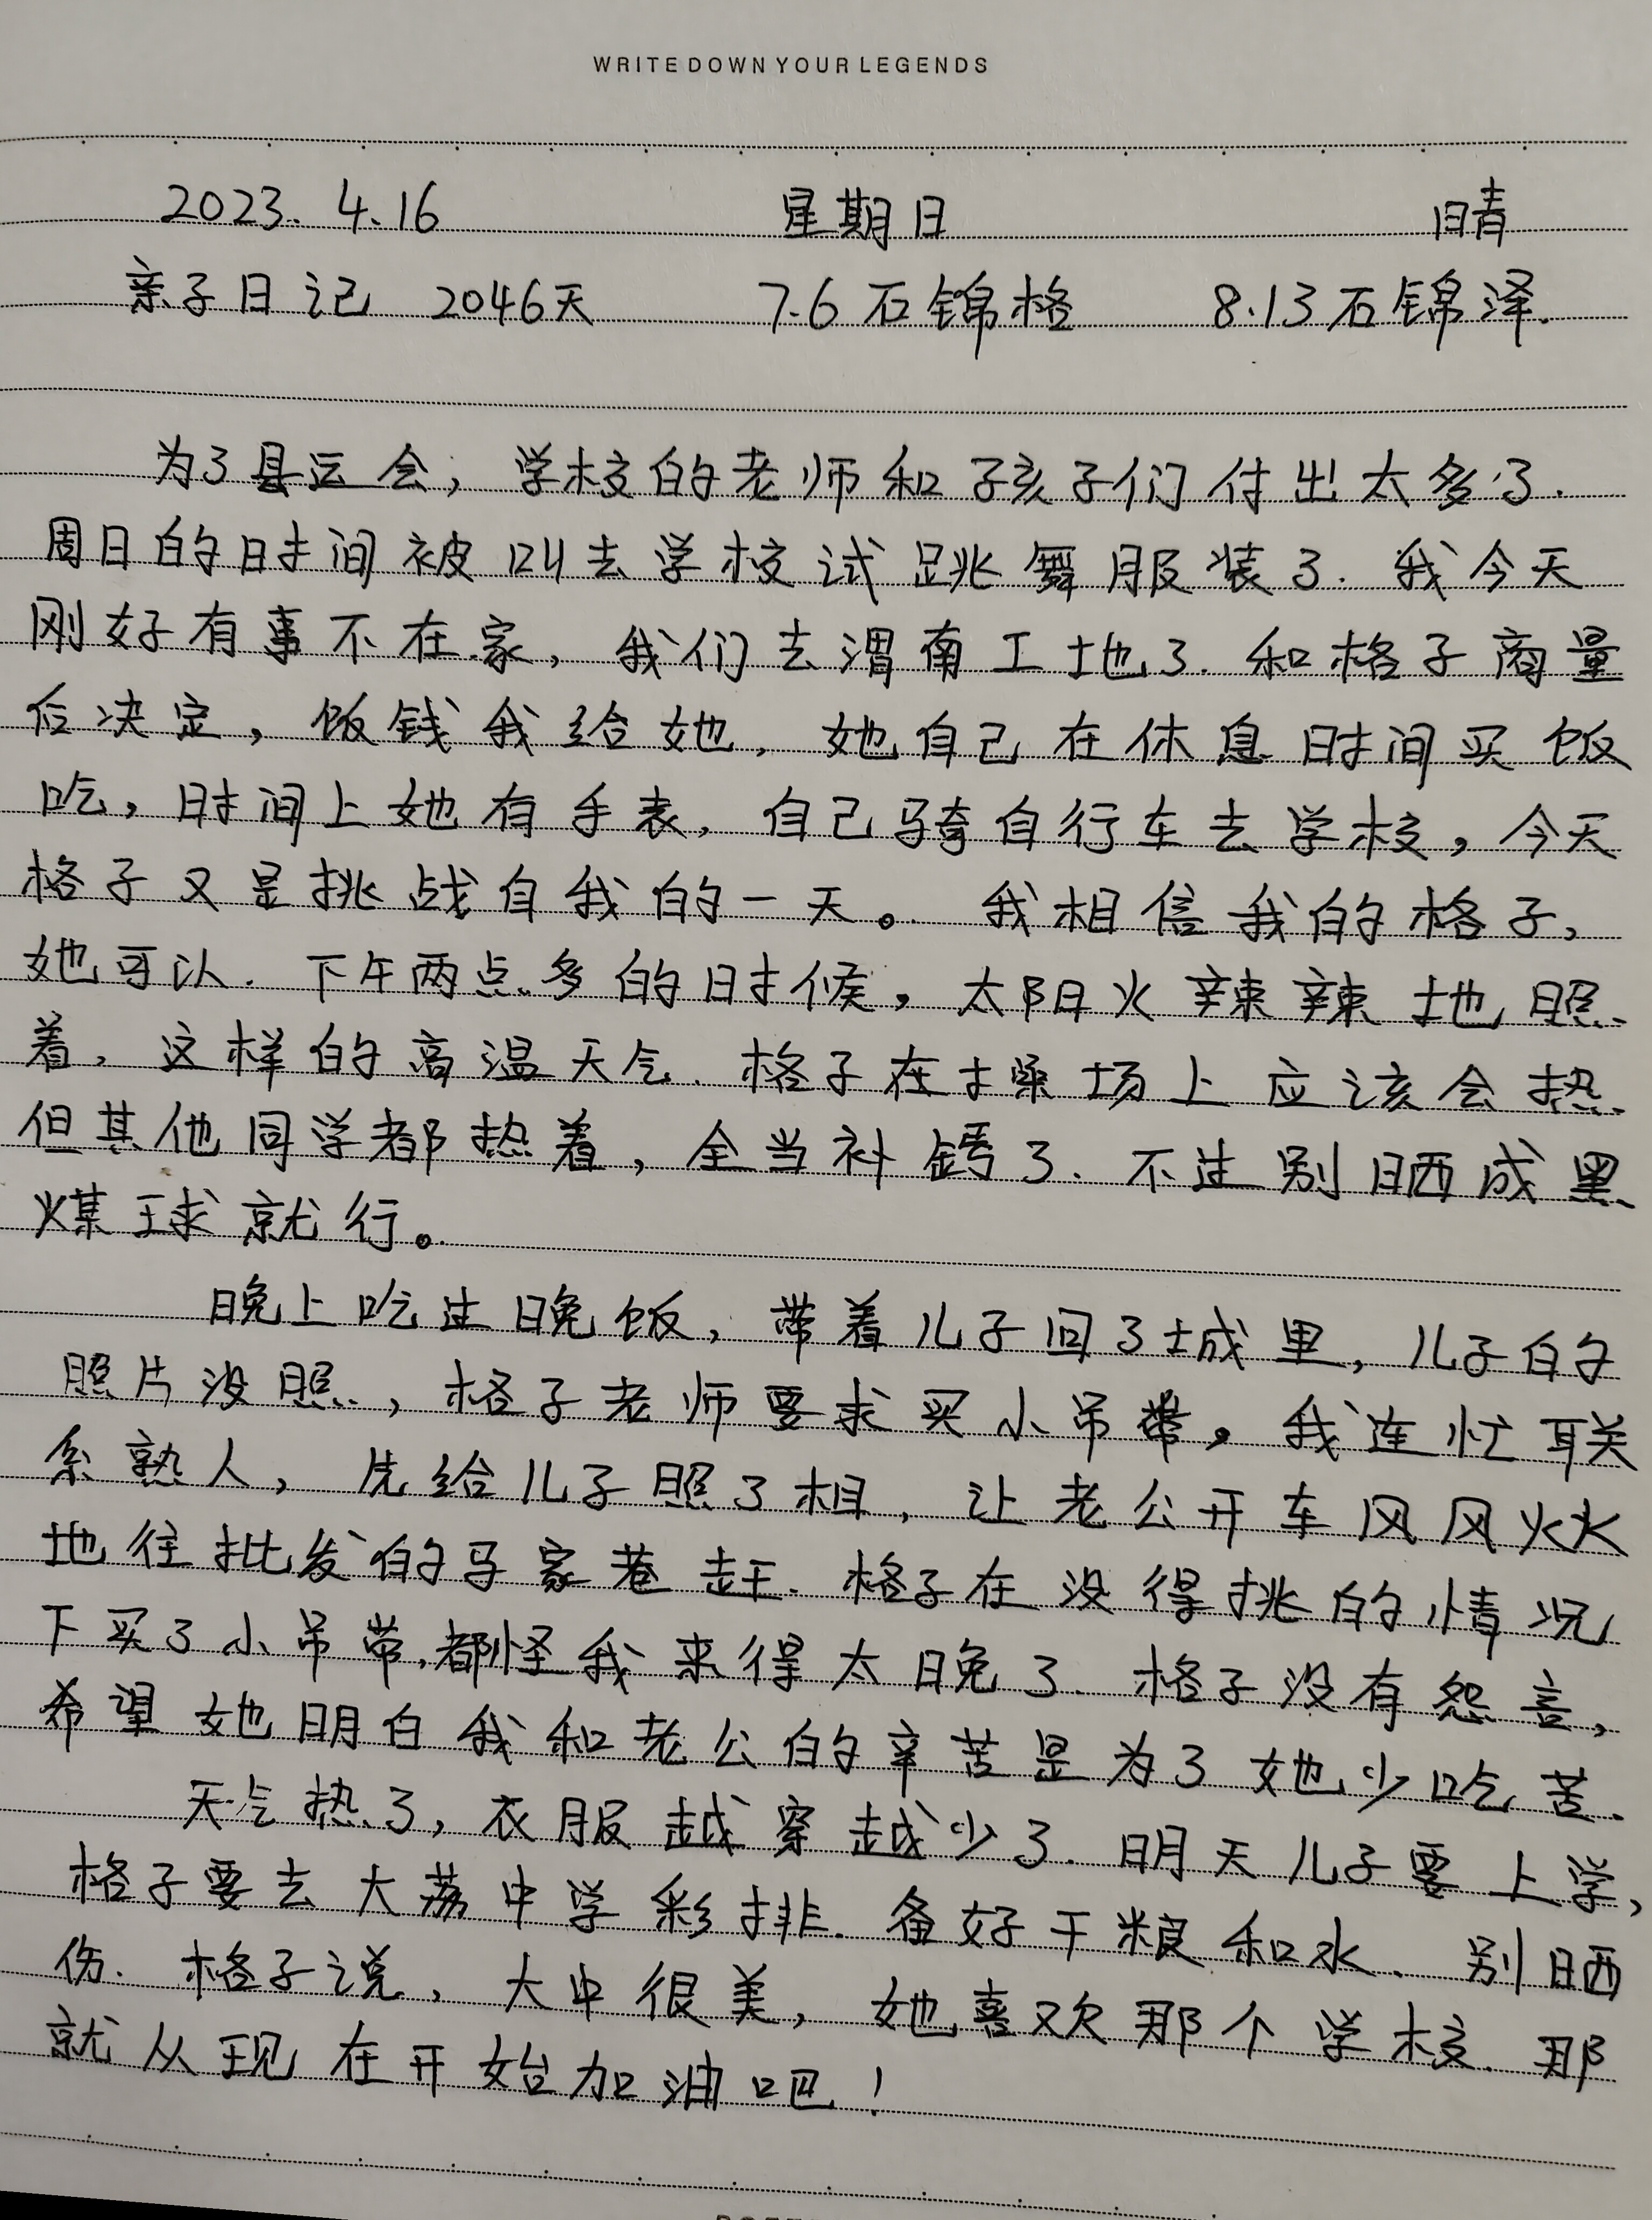 WRITE DOWN YOUR LEGENDS
2023. 4.16 星期日 晴
亲子日记 2046天 7.6石锦格 8.13石锦泽.
为了县运会，学校的老师和孩子们付出太多了.
周日的时间被叫去学校试跳舞服装了. 我今天
刚好有事不在家，我们去渭南工地了. 和格子商量
后决定，饭钱我给她，她自己在休息时间买饭
吃，时间上她有手表，自己骑自行车去学校，今天
格子又是挑战自我的一天。我相信我的格子，
她可以. 下午两点多的时候，太阳火辣辣地照
着，这样的高温天气. 格子在操场上应该会热.
但其他同学都热着，全当补钙了. 不过别晒成黑
煤球就行。
晚上吃过晚饭，带着儿子回了城里，儿子的
照片没照，格子老师要求买小吊带，我连忙联
系熟人，先给儿子照了相，让老公开车风风火火
地往批发的马家巷赶. 格子在没得挑的情况
下买了小吊带,都怪我来得太晚了. 格子没有怨言，
希望她明白我和老公的辛苦是为了她少吃苦.
天气热了，衣服越穿越少了. 明天儿子要上学，
格子要去大荔中学彩排. 备好干粮和水、别晒
伤. 格子说，大中很美，她喜欢那个学校. 那
就从现在开始加油吧！